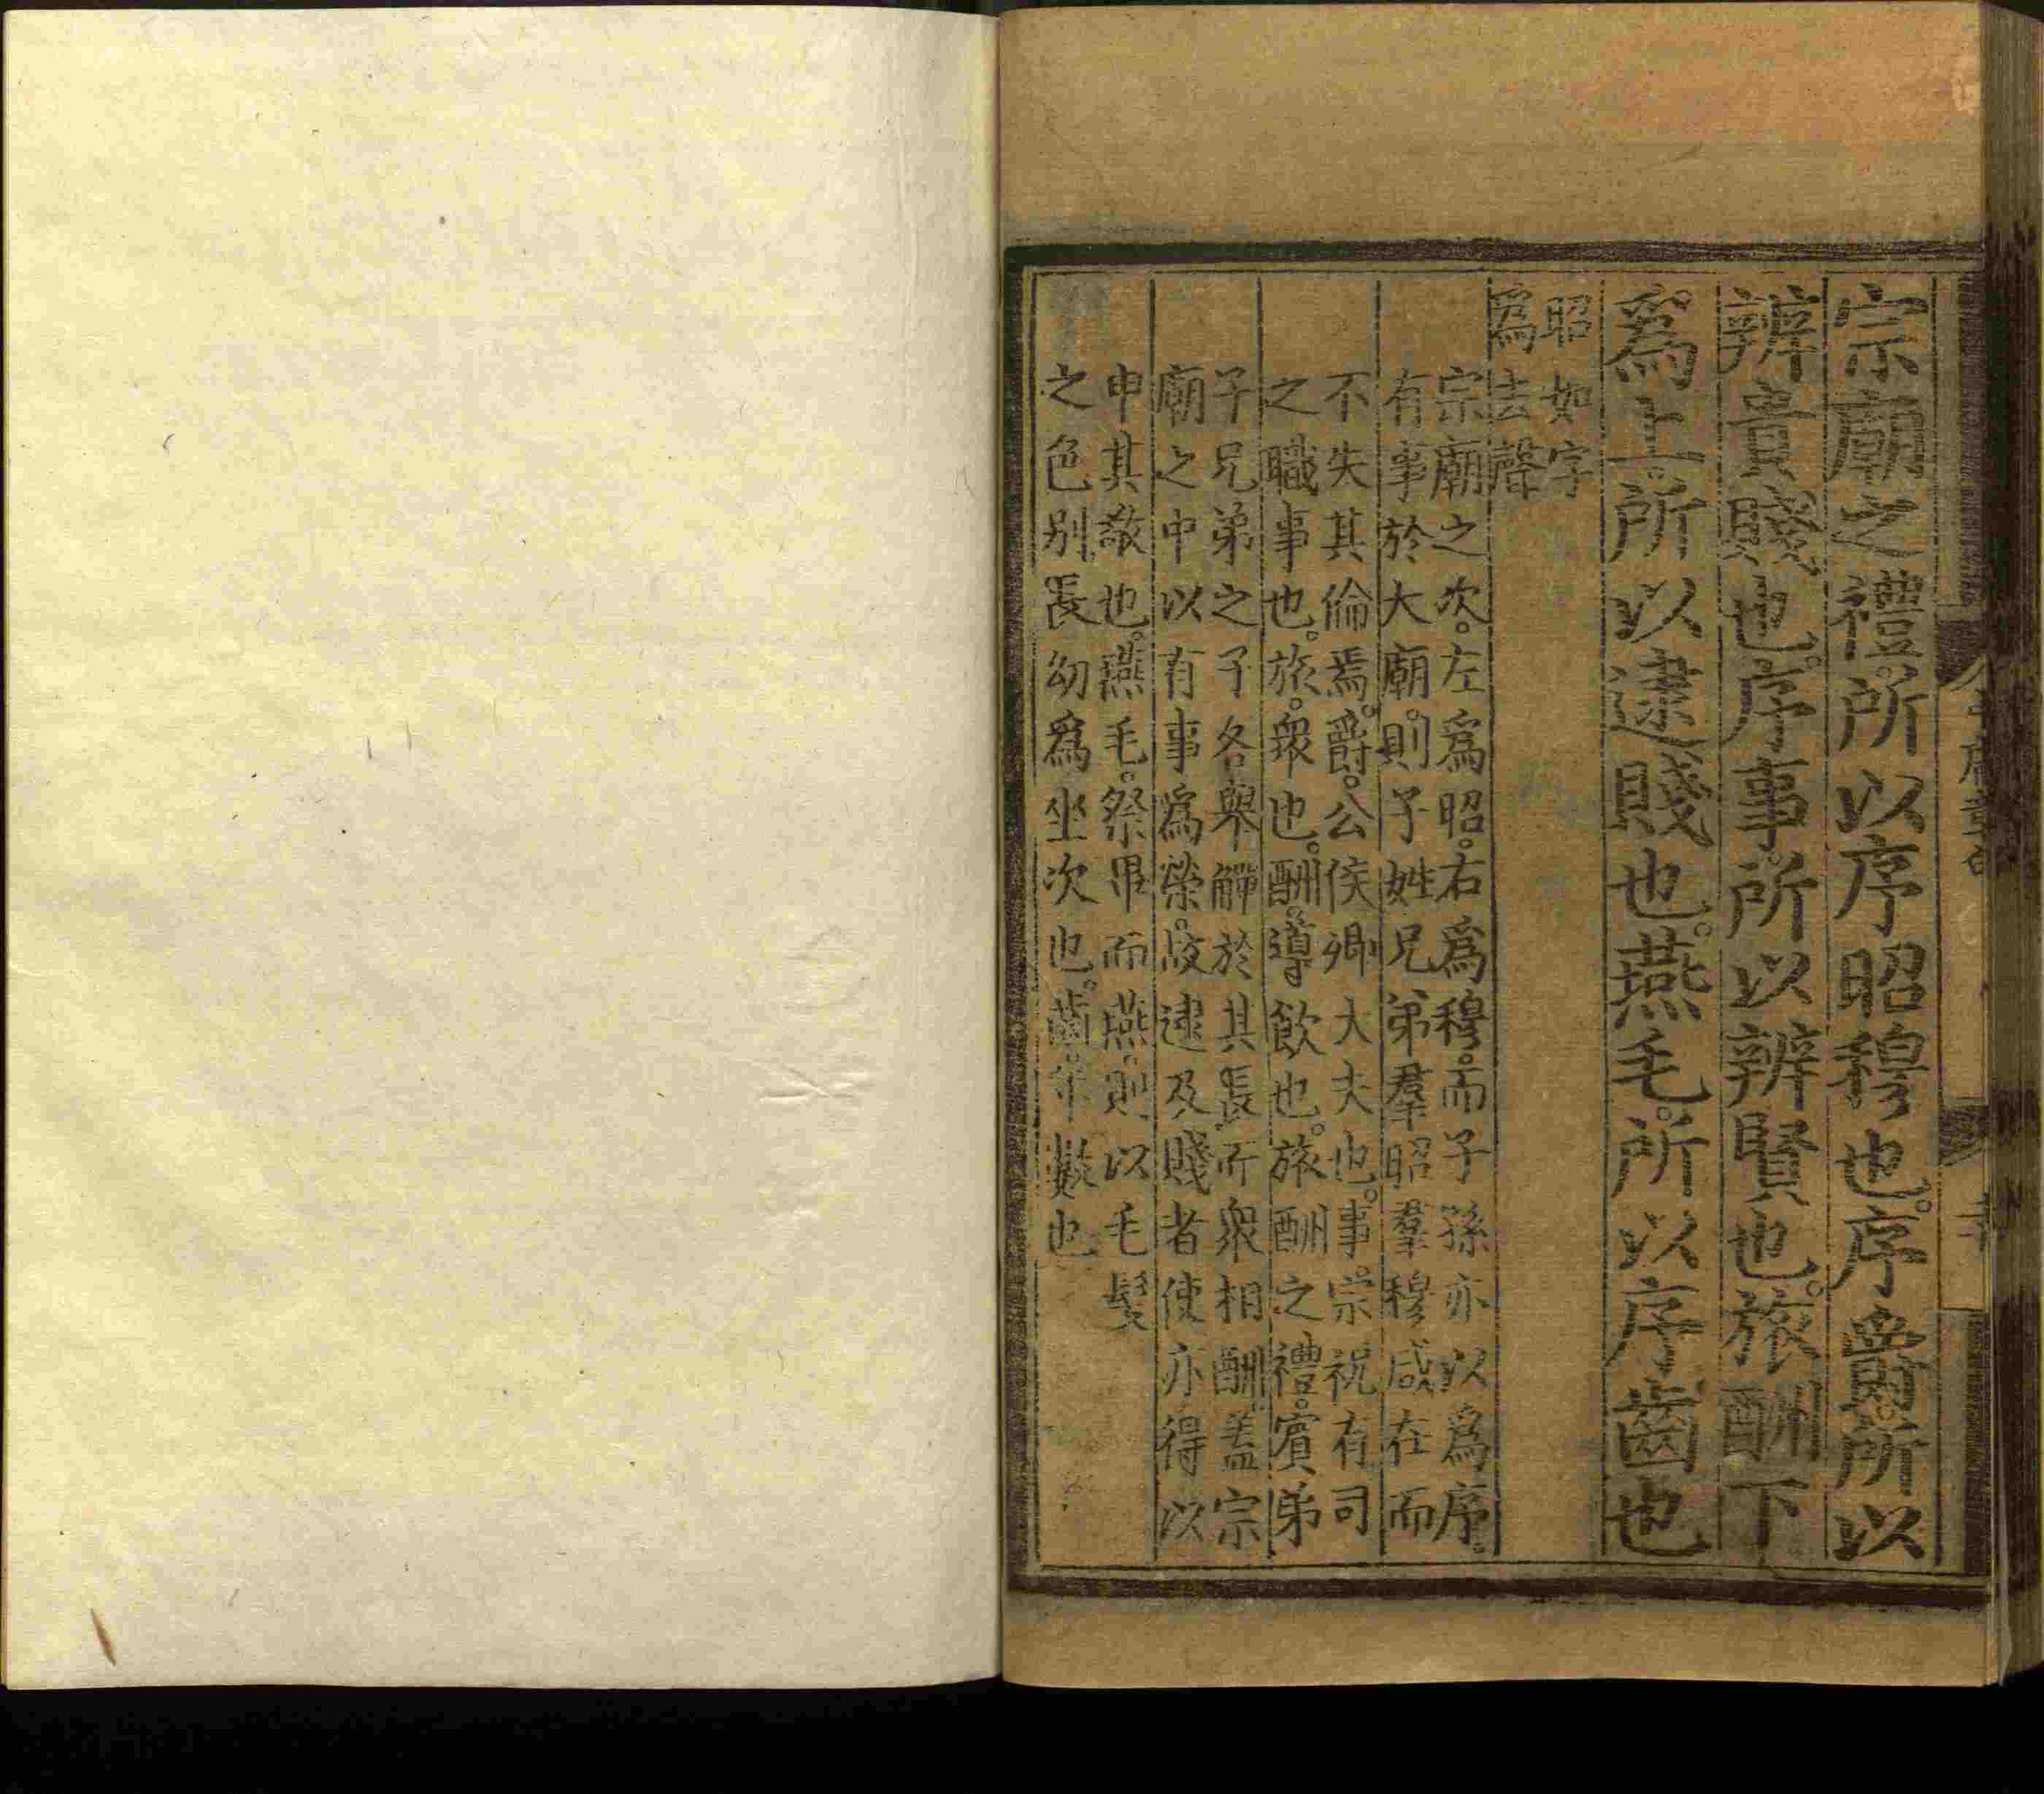 宗廟之禮。所以序昭穆也。序爵。所以
辨貴賤也。序事。所以辨賢也。旅酬下
爲上。所以逮賤也。燕毛。所以序齒也
昭如字
爲去聲
宗廟之次。左爲昭。右爲穆。而子孫亦以爲序。
有事於大廟。則子姓兄弟羣昭羣穆咸在而
不失其倫焉。爵。公侯卿大夫也。事。宗祝有司
之職事也。旅。衆也。酬。導飮也。旅酬之禮。賓弟
子兄弟之子各舉觶於其長。而衆相酬。蓋宗
廟之中以有事爲榮。故逮及賤者使亦得以
申其敬也。燕毛。祭畢而燕。則以毛髮
之色別長幼爲坐次也。齒。年數也
中庸章句